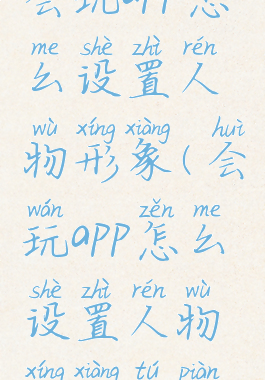 会玩app怎
me shè zhì rén
么设置人
wù xíng xiàng huì
物形象(会
wán zěn me
玩app怎么
shè zhì rén wù
设置人物
xíng xiàng tú piàn